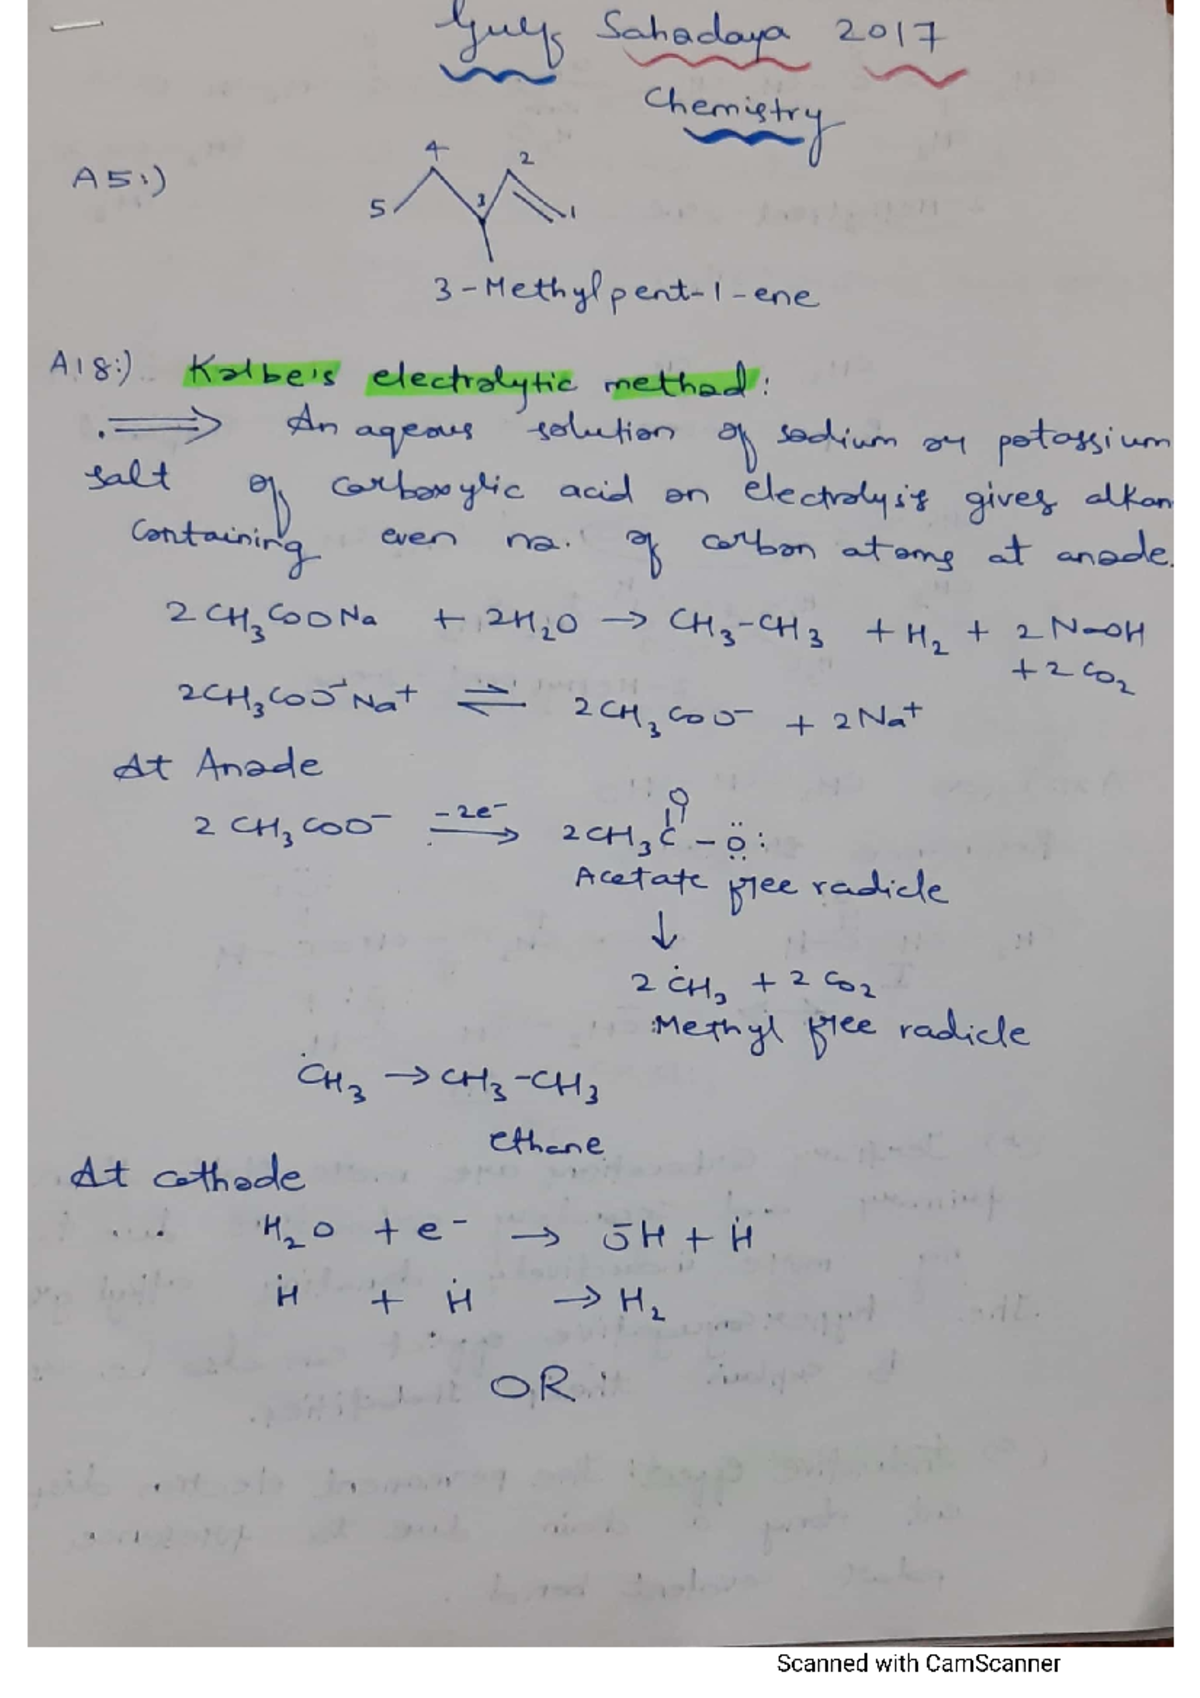 Gulf Sahodaya 2017
Chemistry
A5:)
4
2
5
3
1
3-Methylpent-1-ene
A18:) Kolbe's electrolytic method:
⟹ An aqeous solution of sodium or potassium
salt of carboxylic acid on electrolysis gives alkan
containing even no. of carbon atoms at anode.
2 CH₃COONa + 2H₂O → CH₃-CH₃ + H₂ + 2 NaOH
+ 2 CO₂
2CH₃COO⁻Na⁺ ⇌ 2 CH₃COO⁻ + 2Na⁺
At Anode
2 CH₃COO⁻ -2e⁻→ 2CH₃C-O:
O
Acetate free radicle
↓
2 ĊH₃ + 2 CO₂
Methyl free radicle
ĊH₃ → CH₃-CH₃
ethane
At cathode
H₂O + e⁻ → ŌH + Ḣ
Ḣ + Ḣ → H₂
OR
Scanned with CamScanner